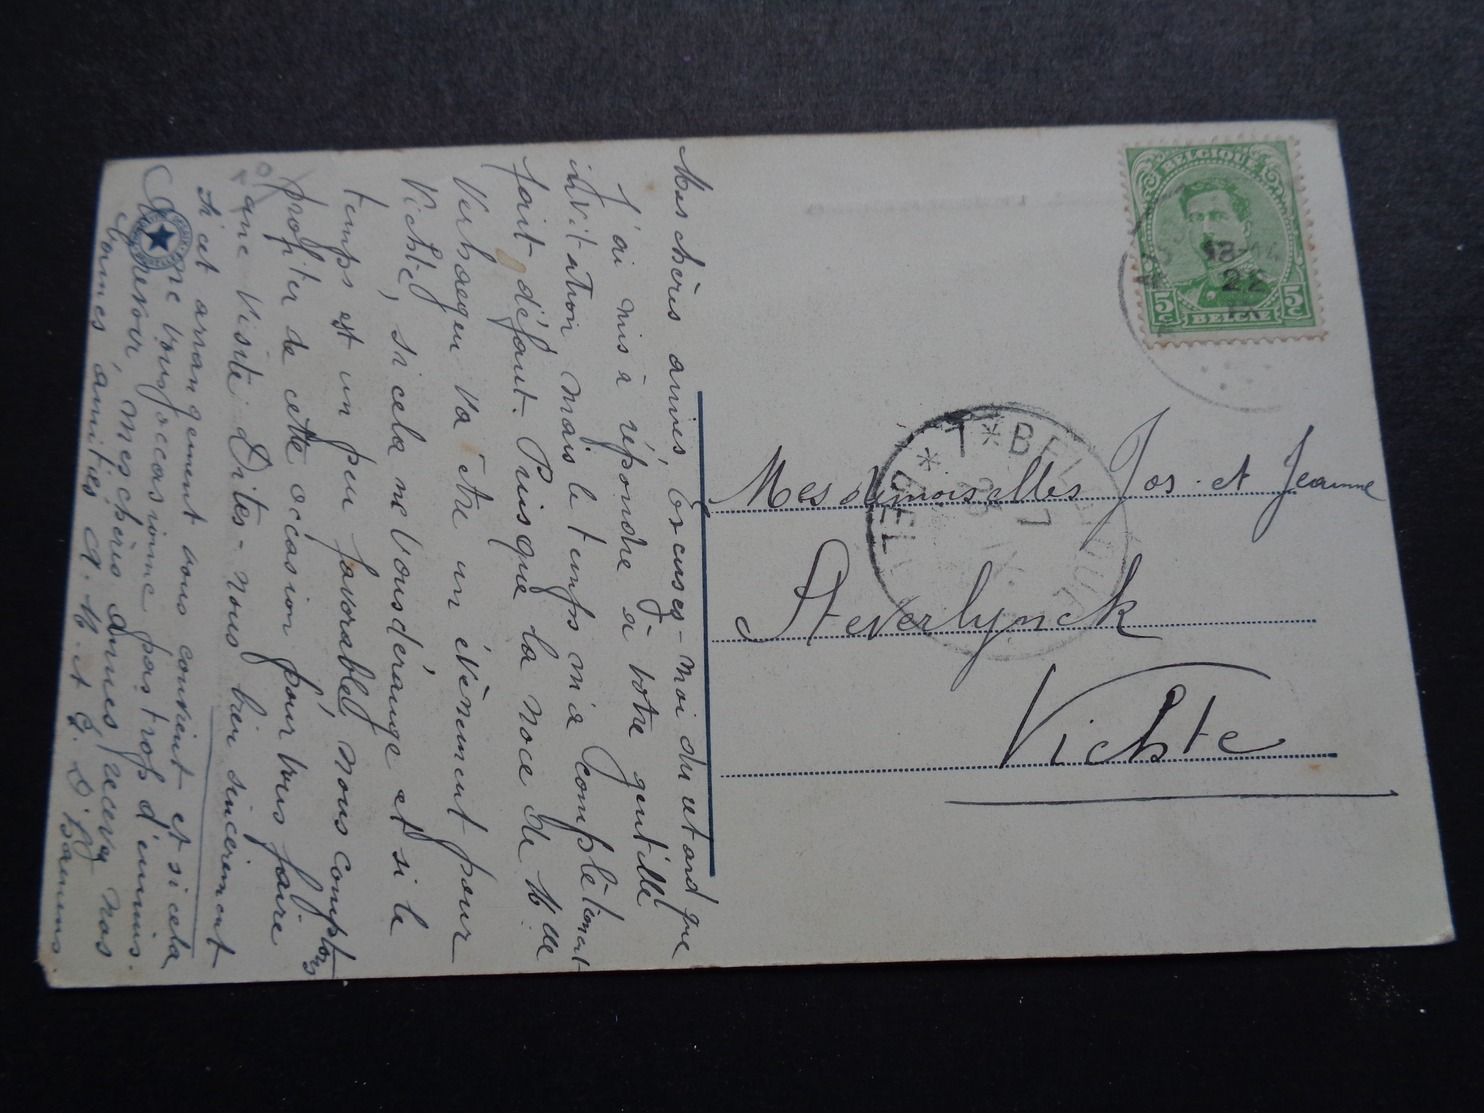 Mes chères amies, Excusez-moi du retard que
j'ai mis à répondre à votre gentille
invitation mais le temps m'a complètement
fait défaut. Puisque la noce de Mlle
Verhaeghe va être un événement pour
Vichte, si cela ne vous dérange et si le
temps est un peu favorable, nous comptons
profiter de cette occasion pour vous faire
une visite. Dites-nous bien sincerement
si cet arrangement vous convient et si cela
ne vous occasionne pas trop d'ennuis.
Au revoir, mes chères amies, recevez nos
bonnes amitiés A. M. et G. D'
BELGIQUE
5c 5c
BELGIË
18
22
* 1 * BELGIQUE
Mesdemoiselles Jos. et Jeanne
Steverlynck
Vichte